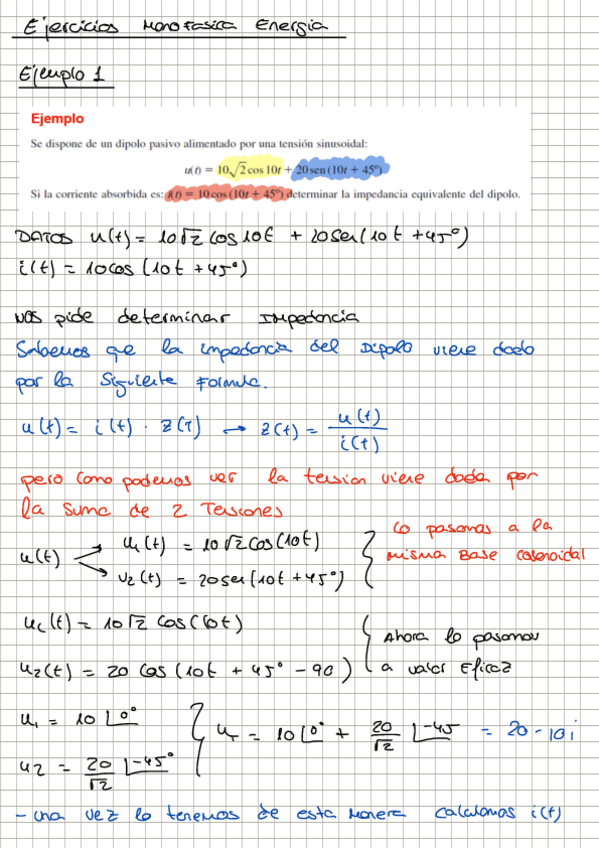 Ejercicios Monofasica Energia
Ejemplo 1
Ejemplo
Se dispone de un dipolo pasivo alimentado por una tensión sinusoidal:
u(t) = 10√2 cos 10t + 20 sen (10t + 45º)
Si la corriente absorbida es: i(t) = 10 cos (10t + 45º) determinar la impedancia equivalente del dipolo.
DATOS u(t) = 10√2 cos 10t + 20 sen (10t + 45°)
i(t) = 10cos (10t + 45°)
NOS pide determinar Impedancia
Sabemos que la impedancia del Dipolo viene dado
por la Siguiente Formula.
u(t) = i(t) · Z(t) → Z(t) = u(t) / i(t)
pero como podemos ver la tension viene dada por
la suma de 2 Tensiones
u(t) u₁(t) = 10√2 cos(10t)
u₂(t) = 20 sen (10t + 45°)
Lo pasamos a la
misma Base cosenoidal
u₁(t) = 10√2 cos(10t)
u₂(t) = 20 cos (10t + 45° - 90)
Ahora lo pasamos
a valor Eficaz
u₁ = 10 ∠0°
u₂ = 20/√2 ∠-45°
u_T = 10 ∠0° + 20/√2 ∠-45 = 20 - 10i
- una vez lo tenemos de esta manera calculamos i(t)